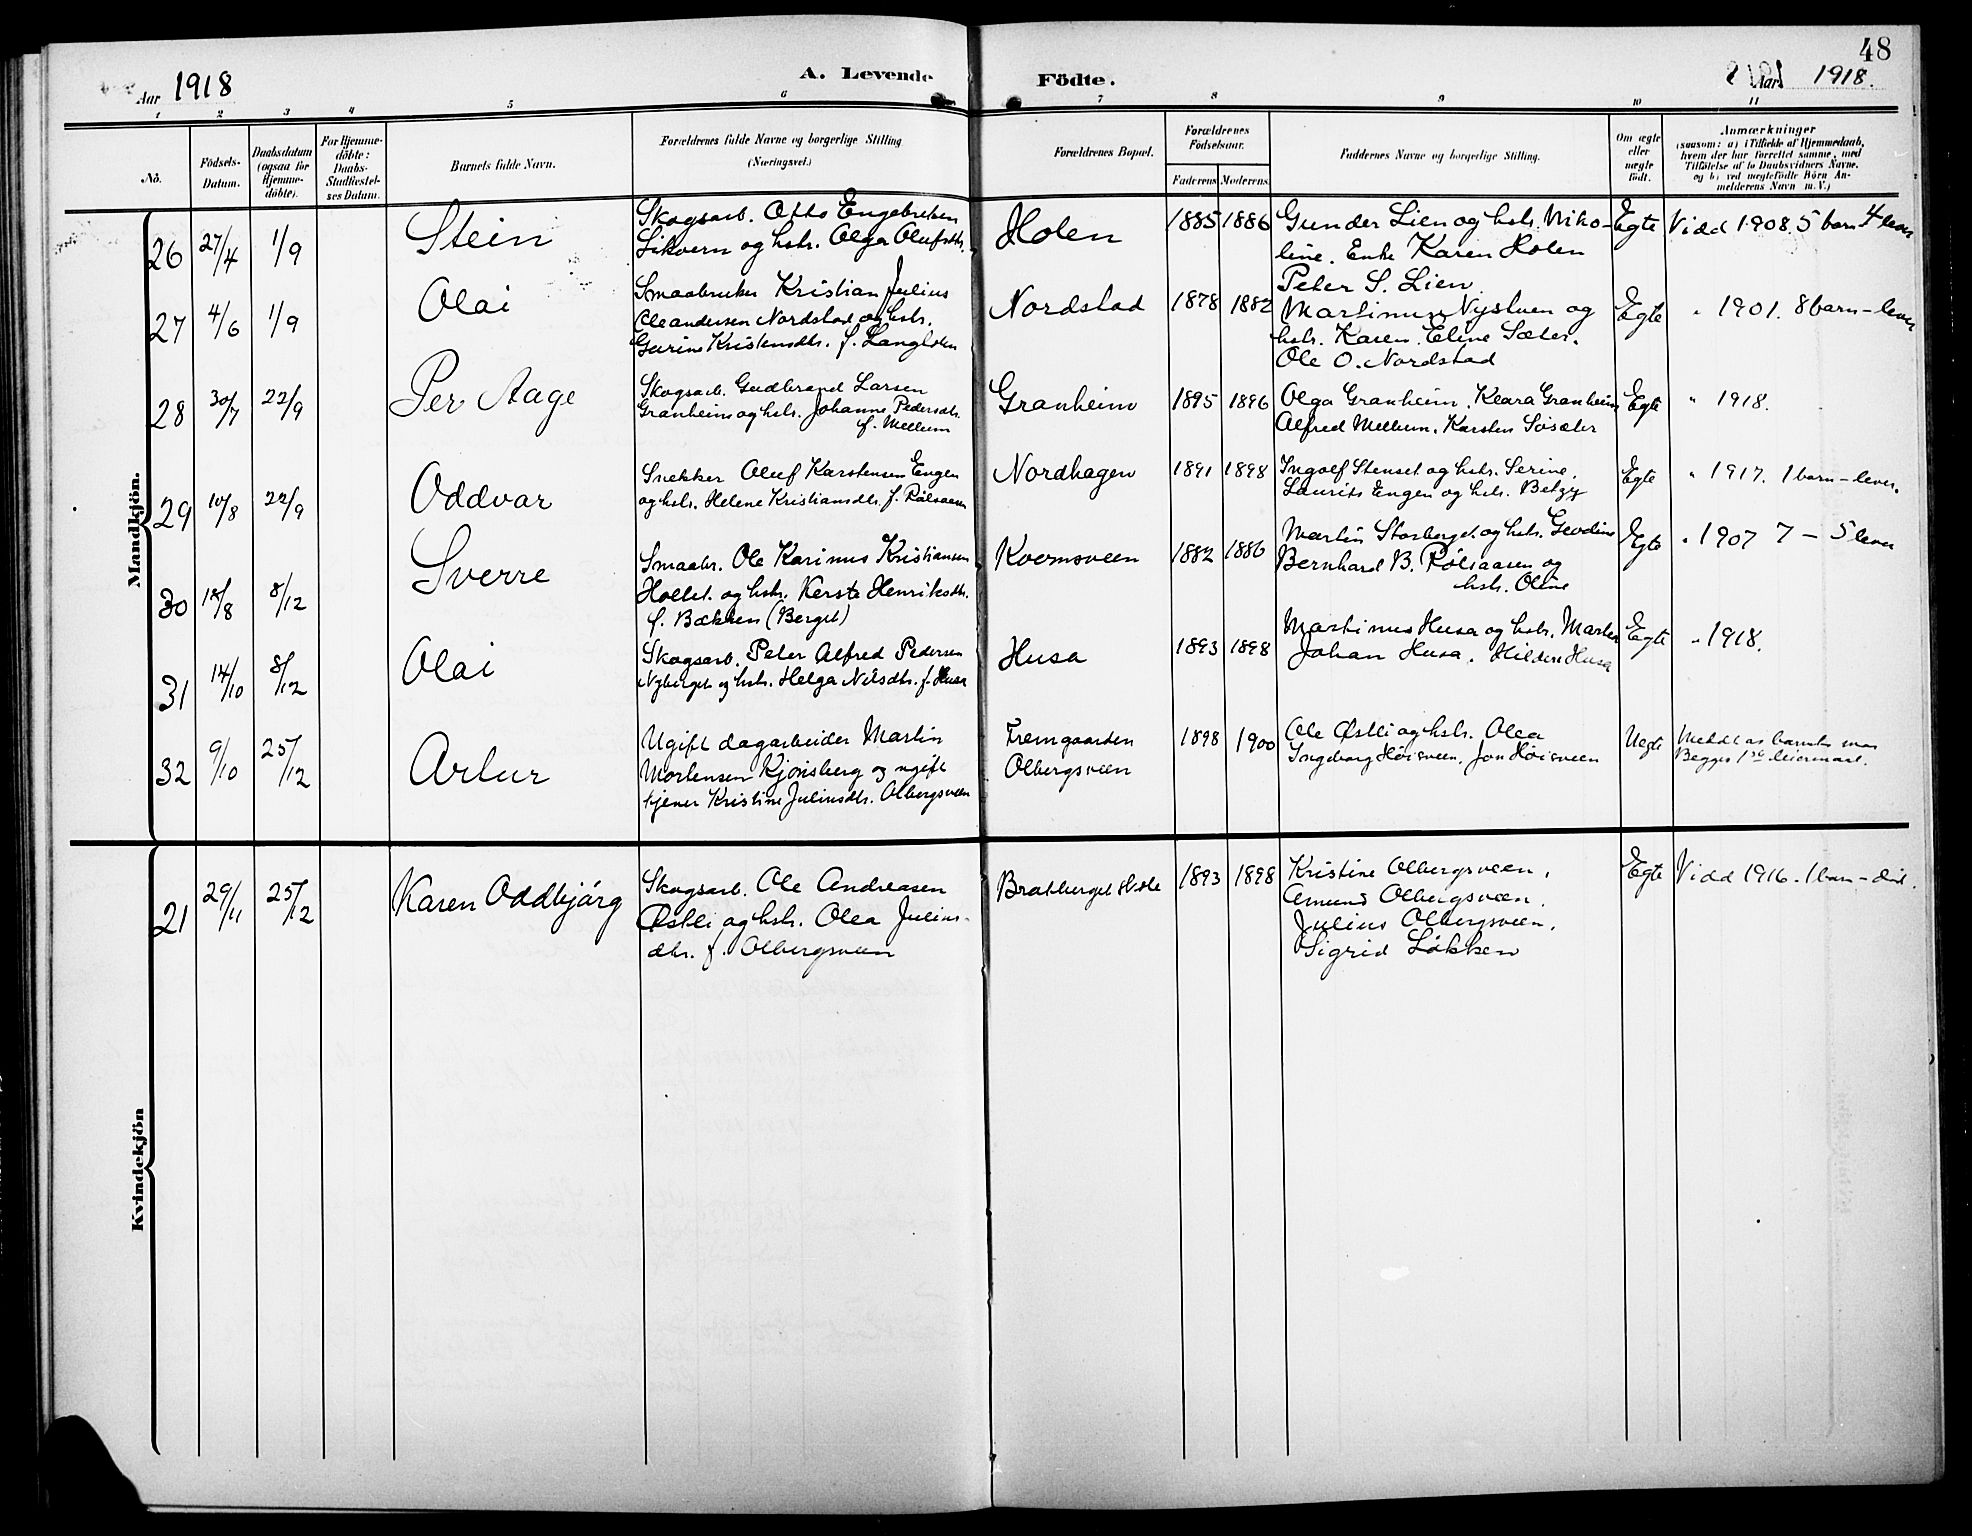 48
Aar 1918
A. Levende Födte.
Aar 1918.
1 2 3 4 5 6 7 8 9 10 11
No.
Födsels-
Datum.
Daabsdatum
(ogsaa for
Hjemme-
döbte).
For Hjemme-
döbte:
Daabs-
Stadfæstel-
ses Datum.
Barnets fulde Navn.
Forældrenes fulde Navne og borgerlige Stilling
(Næringsvei.)
Forældrenes Bopæl.
Forældrenes
Födselsaar.
Faderens Moderens
Faddernes Navne og borgerlige Stilling.
Om ægte
eller
uægte
födt.
Anmærkninger
(saasom: a) i Tilfælde af Hjemmedaab,
hvem der har forrettet samme, med
Tilföielse af to Daabsvidners Navne,
og b) ved uægtefödte Börn An-
melderens Navn m. V.)
Mandkjön.
26 27/4 1/9
Stein
Skogsarb. Otto Engebretsen
Sikvern og hstr. Olga Olufsdtr.
Holen
1885 1886
Gunder Lien og hstr. Niko-
line. Enke Karen Holen
Peter S. Lien.
Egte
Vidd 1908. 5 barn 4 lever
27 4/6 1/9
Olai
Smaabruker Kristian Julius
Oleandersen Nordstad og hstr.
Gurine Kristensdtr. f. Langholen
Nordstad
1878 1882
Martinus Nystuen og
hstr. Karen. Eline Sæter.
Ole O. Nordstad
Egte
" 1901. 8 barn - lever
28 30/7 22/9
Per Aage
Skogsarb. Gudbrand Larsen
Granheim og hstr. Johanne Pedersdtr.
f. Mellum
Granheim
1895 1896
Olga Granheim, Klara Granheim
Alfred Mellum. Karsten Søsæter
Egte
" 1918.
29 10/8 22/9
Oddvar
Snekker Oluf Karstensen Engen
og hstr. Helene Kristiansdtr. f. Rølsaasen
Nordhagen
1891 1898
Ingolf Stenset og hstr. Serine.
Laurits Engen og hstr. Betzy
Egte
" 1917. 1 barn - lever.
30 18/8 8/12
Sverre
Smaabr. Ole Karinus Kristiansen
Hollet. og hstr. Kerste Henriksdtr.
f. Bækken (Berget)
Kvernsveen
1882 1886
Martin Storberget og hstr.
Bernhard B. Rølsaasen og
hstr. Oline
Egte
" 1907 7 - 5 lever
31 14/10 8/12
Olai
Skogsarb. Peter Alfred Pedersen
Nyberget og hstr. Helga Nilsdtr. f. Husa
Husa
1893 1898
Martinus Husa og hstr. Marten
Johan Husa. Hilden Husa
Egte
" 1918.
32 9/10 25/12
Artur
Ugift dagarbeider Martin
Mortensen Kjønsberg og ugift
tjener Kristine Juliusdtr. Olbergsveen
Fremgaarden
Olbergsveen
1898 1900
Ole Østli og hstr. Olea
Ingeborg Høisveen, Jon Høisveen
Uegte
Meddt av barnets mor
Begges 1ste leiermaal.
Kvindekjön
21 29/11 25/12
Karen Oddbjørg
Skogsarb. Ole Andreasen
Østli og hstr. Olea Julius-
dtr. f. Olbergsveen
Bratberget
1893 1898
Kristine Olbergsveen,
Amund Olbergsveen,
Julius Olbergsveen,
Sigrid Løkken
Egte
Vidd 1916. 1 barn - död.